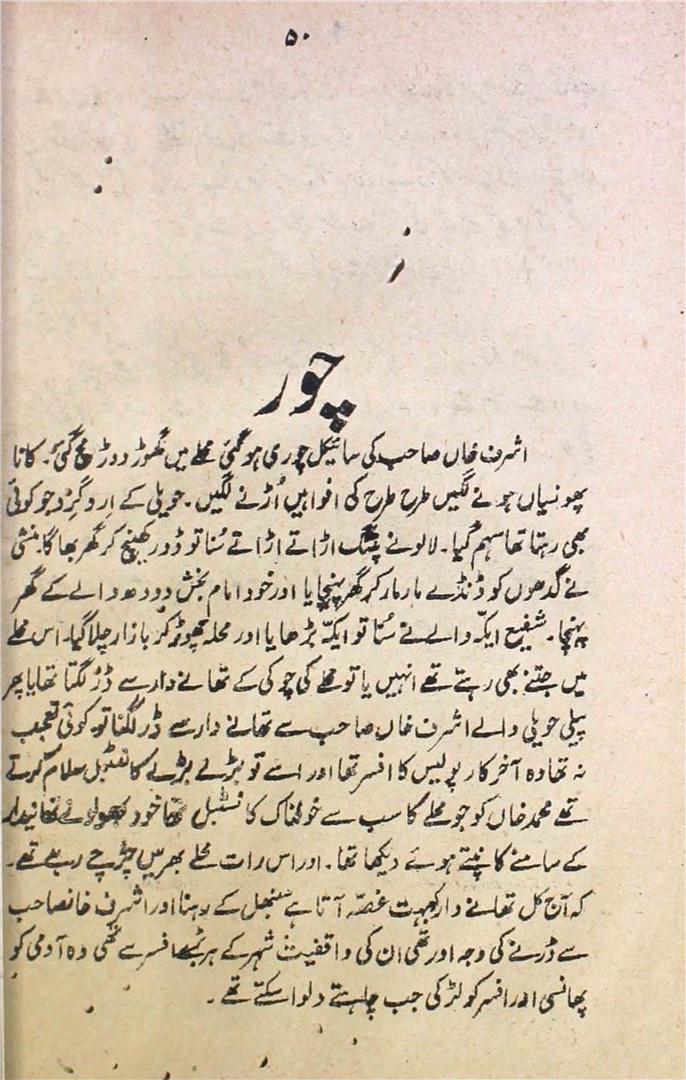 ۵۰
چور
اشرف خاں صاحب کی سائیکل چوری ہو گئی محلے میں گھوڑ دوڑ مچ گئی۔ کانا
پھونیاں ہونے لگیں طرح طرح کی افواہیں اُڑنے لگیں۔ حویلی کے ارد گرد جو کوئی
بھی رہتا تھا سہم گیا۔ لالو نے پتنگ اڑاتے اڑاتے سُنا تو ڈور کھینچ کر گھر بھاگا۔ منشی
نے گدھوں کو ڈنڈے مار مار کر گھر پہنچایا اور خود امام بخش دودھ والے کے گھر
پہنچا۔ شفیع ایکہ والے نے سُنا تو ایکہ بڑھایا اور محلہ چھوڑ کر بازار چلا گیا۔ اس محلے
میں جتنے بھی رہتے تھے انہیں یا تو محلے کی چوکی کے تھانے دار سے ڈر لگتا تھا یا پھر
پیلی حویلی والے اشرف خاں صاحب سے تھانے دار سے ڈر لگنا تو کوئی تعجب
نہ تھا وہ آخر کار پولیس کا افسر تھا اور اسے تو بڑے بڑے کانسٹبل سلام کرتے
تھے محمد خاں کو جو محلے کا سب سے خوفناک کانسٹبل تھا خود تھانیدار
کے سامنے کانپتے ہوئے دیکھا تھا۔ اور اس رات محلے بھر میں چرچے رہے تھے۔
کہ آج کل تھانے دار کو بہت غصہ آتا ہے سنبھل کے رہنا اور اشرف خانصاحب
سے ڈرنے کی وجہ اور تھی ان کی واقفیت شہر کے ہر بڑے افسر سے تھی وہ آدمی کو
پھانسی اور افسر کو لڑکی جب چاہتے دلوا سکتے تھے۔